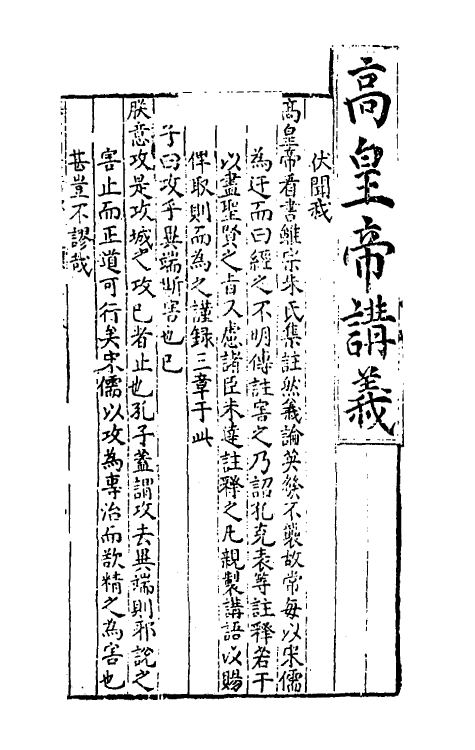 高皇帝講義
伏聞我
高皇帝看書雖宗朱氏集註然義論英發不襲故常每以宋儒
為迂而曰經之不明傳註害之乃詔孔克表等註釋若干
以盡聖賢之旨又慮諸臣未達註釋之凡親製講語以賜
俾取則而為之謹録三章于此
子曰攻乎異端斯害也已
朕意攻是攻城之攻已者止也孔子蓋謂攻去異端則邪說之
害止而正道可行矣宋儒以攻為專治而欲精之為害也
甚豈不謬哉